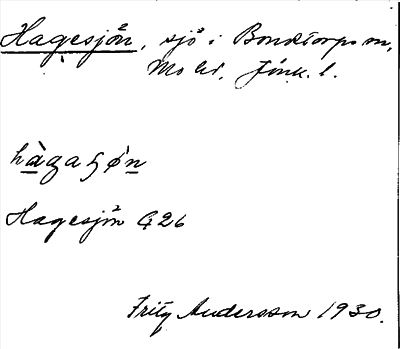 Hagesjön, sjö i Bondstorps sn,
Mo hd, Jönk. l.
hàgaʃø̀n
Hagesjön G26
Fritz Andersson 1930.